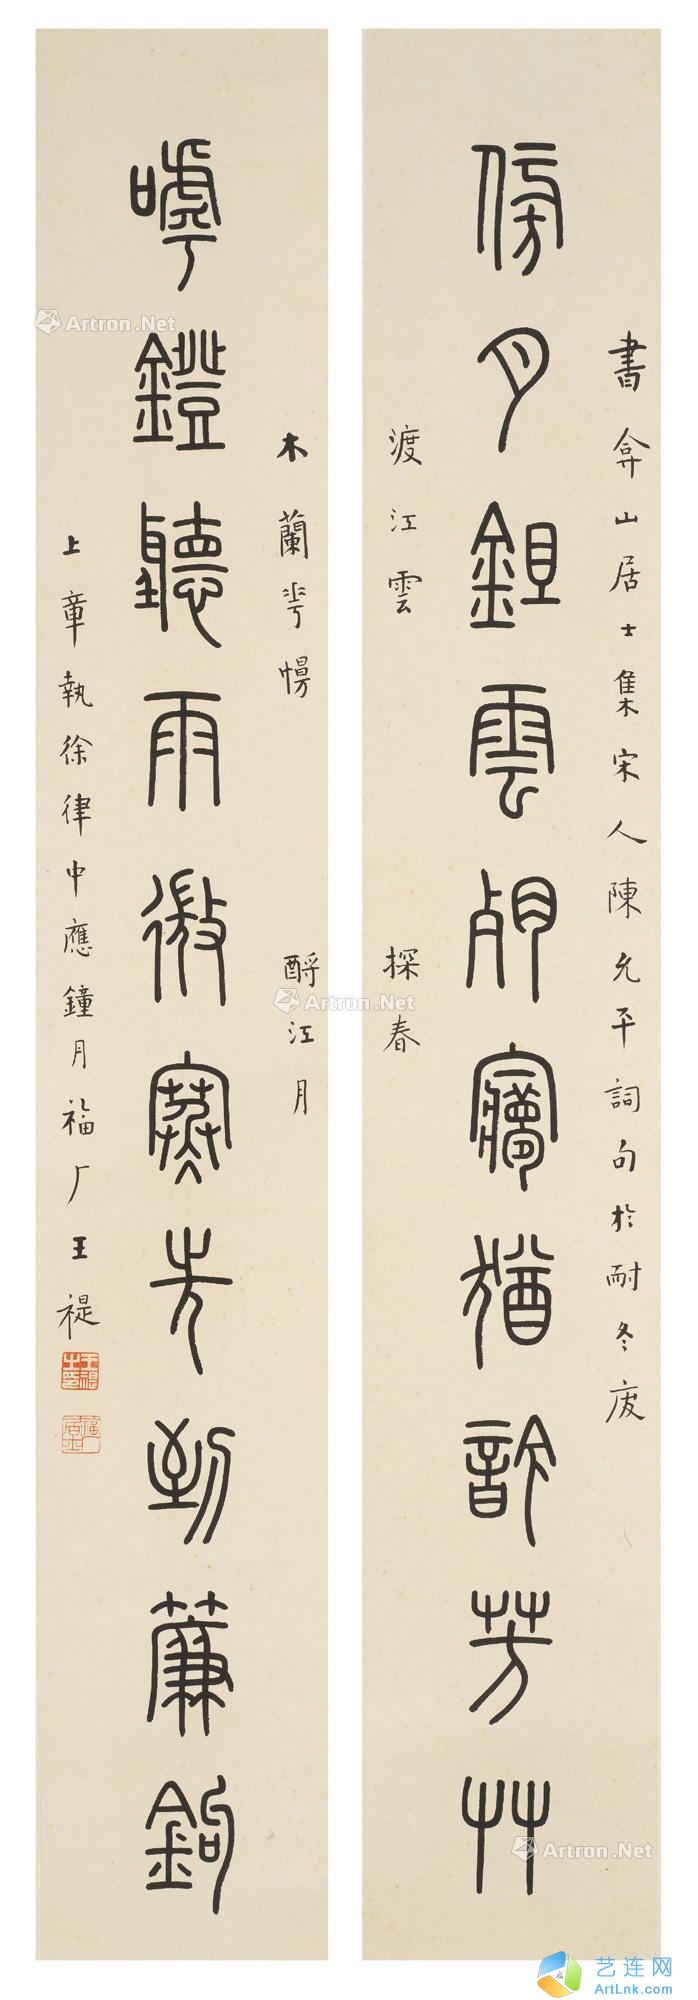 書弇山居士集宋人陳允平詞句於耐冬庋
傍月鉏雲㝱猶訴芳艸
渡江雲
探春
木蘭慢
酹江月
嘑鐙聽雨微寒先到簾鉤
上章執徐律中應鐘月福厂王禔
王禔之印
福厂居士
Artron.Net
Artron.Net
Artron.Net
Artron.Net
艺连网
ArtLnk.com